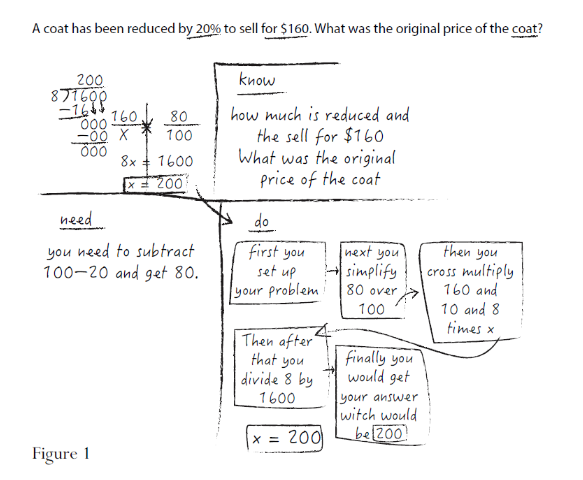 A coat has been reduced by 20% to sell for $160. What was the original price of the coat?
200
8 1600
-16
000
-00
000
160 80
X 100
8x = 1600
x = 200
know
how much is reduced and
the sell for $160
What was the original
price of the coat
need
you need to subtract
100-20 and get 80.
do
first you
set up
your problem
next you
simplify
80 over
100
then you
cross multiply
160 and
10 and 8
times x
Then after
that you
divide 8 by
1600
finally you
would get
your answer
witch would
be 200
x = 200
Figure 1